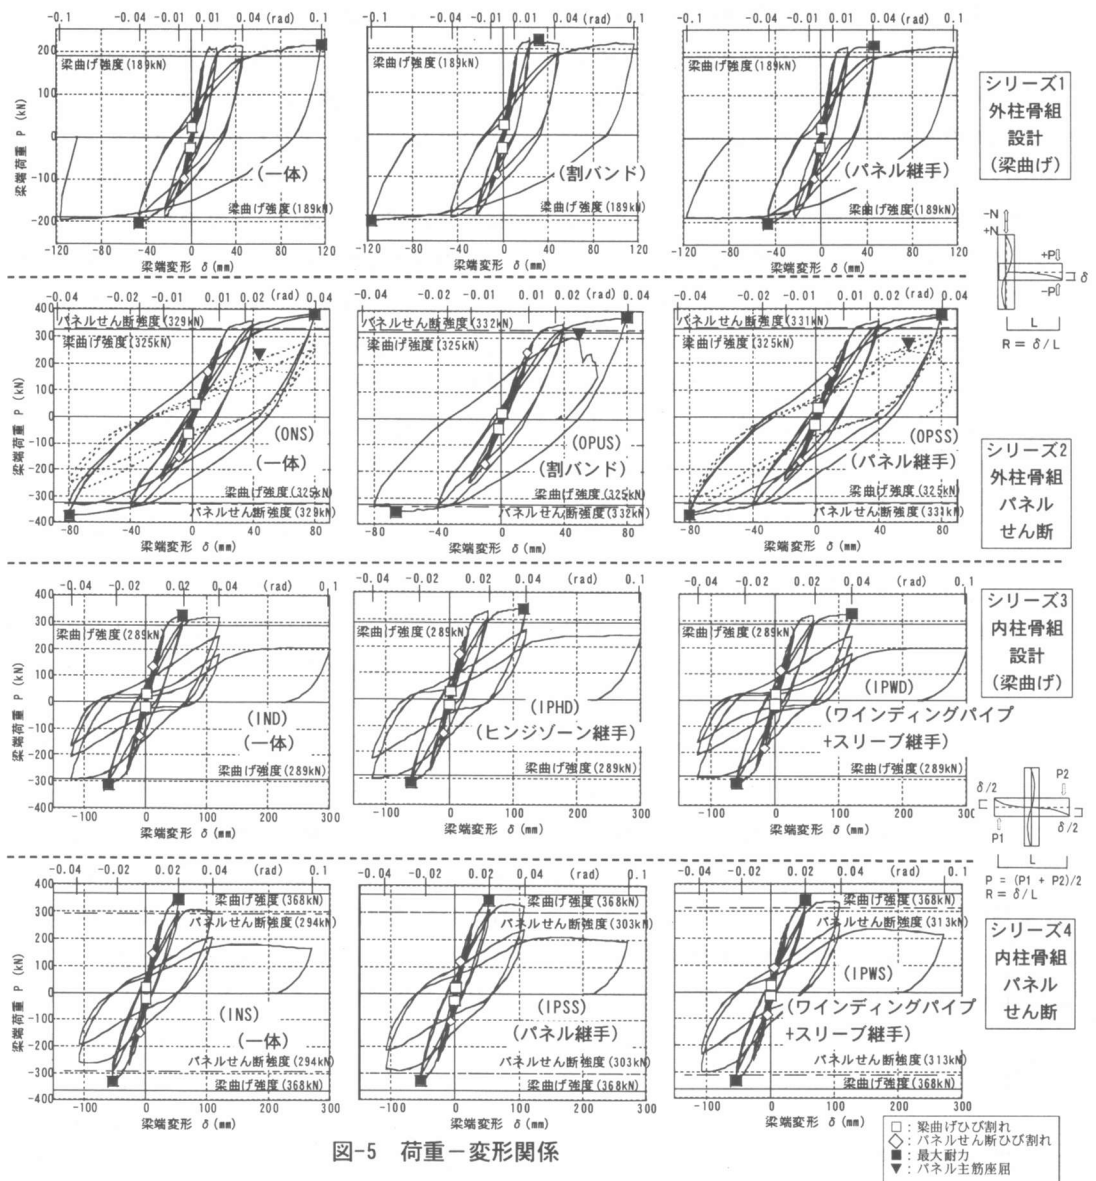 -0.1 -0.04 -0.01 0.01 0.04 (rad) 0.1
梁端荷重 P (kN)
200
100
0
-100
-200
梁曲げ強度(189kN)
(一体)
梁曲げ強度(189kN)
-120 -80 -40 0 40 80 120
梁端変形 δ (mm)
-0.1 -0.04 -0.01 0.01 0.04 (rad) 0.1
梁曲げ強度(189kN)
(割バンド)
梁曲げ強度(189kN)
-120 -80 -40 0 40 80 120
梁端変形 δ (mm)
-0.1 -0.04 -0.01 0.01 0.04 (rad) 0.1
梁曲げ強度(189kN)
(パネル継手)
梁曲げ強度(189kN)
-120 -80 -40 0 40 80 120
梁端変形 δ (mm)
シリーズ1
外柱骨組
設計
(梁曲げ)
-N
+N
+P
-P
δ
L
R = δ/L
-0.04 -0.02 -0.01 0.01 0.02 (rad) 0.04
梁端荷重 P (kN)
400
300
200
100
0
-100
-200
-300
-400
パネルせん断強度(329kN)
梁曲げ強度(325kN)
(ONS)
(一体)
梁曲げ強度(325kN)
パネルせん断強度(329kN)
-80 -40 0 40 80
梁端変形 δ (mm)
-0.04 -0.02 -0.01 0.01 0.02 (rad) 0.04
パネルせん断強度(332kN)
梁曲げ強度(325kN)
(OPUS)
(割バンド)
梁曲げ強度(325kN)
パネルせん断強度(332kN)
-80 -40 0 40 80
梁端変形 δ (mm)
-0.04 -0.02 -0.01 0.01 0.02 (rad) 0.04
パネルせん断強度(331kN)
梁曲げ強度(325kN)
(OPSS)
(パネル継手)
梁曲げ強度(325kN)
パネルせん断強度(331kN)
-80 -40 0 40 80
梁端変形 δ (mm)
シリーズ2
外柱骨組
パネル
せん断
-0.04 -0.02 0.02 0.04 (rad) 0.1
梁端荷重 P (kN)
400
300
200
100
0
-100
-200
-300
-400
梁曲げ強度(289kN)
(IND)
(一体)
梁曲げ強度(289kN)
-100 0 100 200 300
梁端変形 δ (mm)
-0.04 -0.02 0.02 0.04 (rad) 0.1
梁曲げ強度(289kN)
(IPHD)
(ヒンジゾーン継手)
梁曲げ強度(289kN)
-100 0 100 200 300
梁端変形 δ (mm)
-0.04 -0.02 0.02 0.04 (rad) 0.1
梁曲げ強度(289kN)
(IPWD)
(ワインディングパイプ
+スリーブ継手)
梁曲げ強度(289kN)
-100 0 100 200 300
梁端変形 δ (mm)
シリーズ3
内柱骨組
設計
(梁曲げ)
P2
δ/2
P1
δ/2
L
P = (P1 + P2)/2
R = δ/L
-0.04 -0.02 0.02 0.04 (rad) 0.1
梁端荷重 P (kN)
400
300
200
100
0
-100
-200
-300
-400
梁曲げ強度(368kN)
パネルせん断強度(294kN)
(INS)
(一体)
パネルせん断強度(294kN)
梁曲げ強度(368kN)
-100 0 100 200 300
梁端変形 δ (mm)
-0.04 -0.02 0.02 0.04 (rad) 0.1
梁曲げ強度(368kN)
パネルせん断強度(303kN)
(IPSS)
(パネル継手)
パネルせん断強度(303kN)
梁曲げ強度(368kN)
-100 0 100 200 300
梁端変形 δ (mm)
-0.04 -0.02 0.02 0.04 (rad) 0.1
梁曲げ強度(368kN)
パネルせん断強度(313kN)
(IPWS)
(ワインディングパイプ
+スリーブ継手)
パネルせん断強度(313kN)
梁曲げ強度(368kN)
-100 0 100 200 300
梁端変形 δ (mm)
シリーズ4
内柱骨組
パネル
せん断
図-5 荷重－変形関係
□:梁曲げひび割れ
◇:パネルせん断ひび割れ
■:最大耐力
▼:パネル主筋座屈